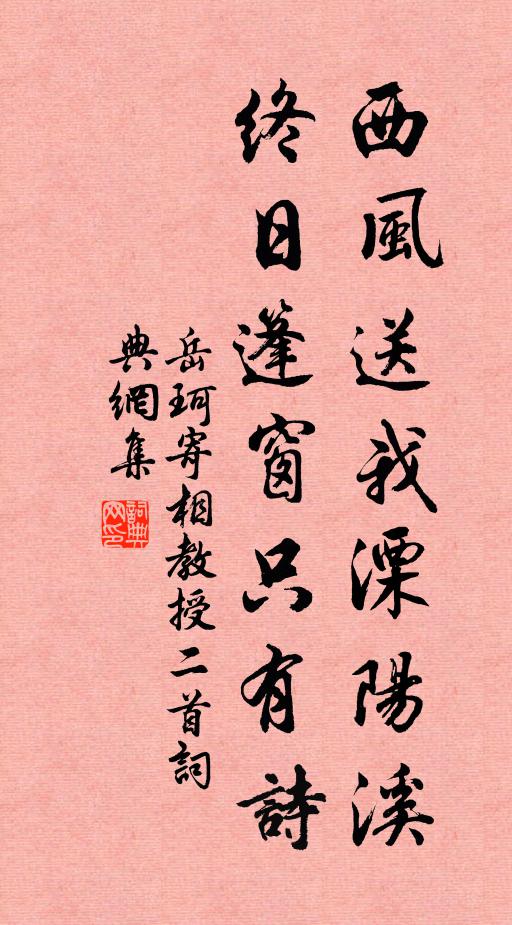 西風送我溧陽溪
終日蓬窗只有詩
岳珂寄相教授二首詞
典網集
詞典
网印